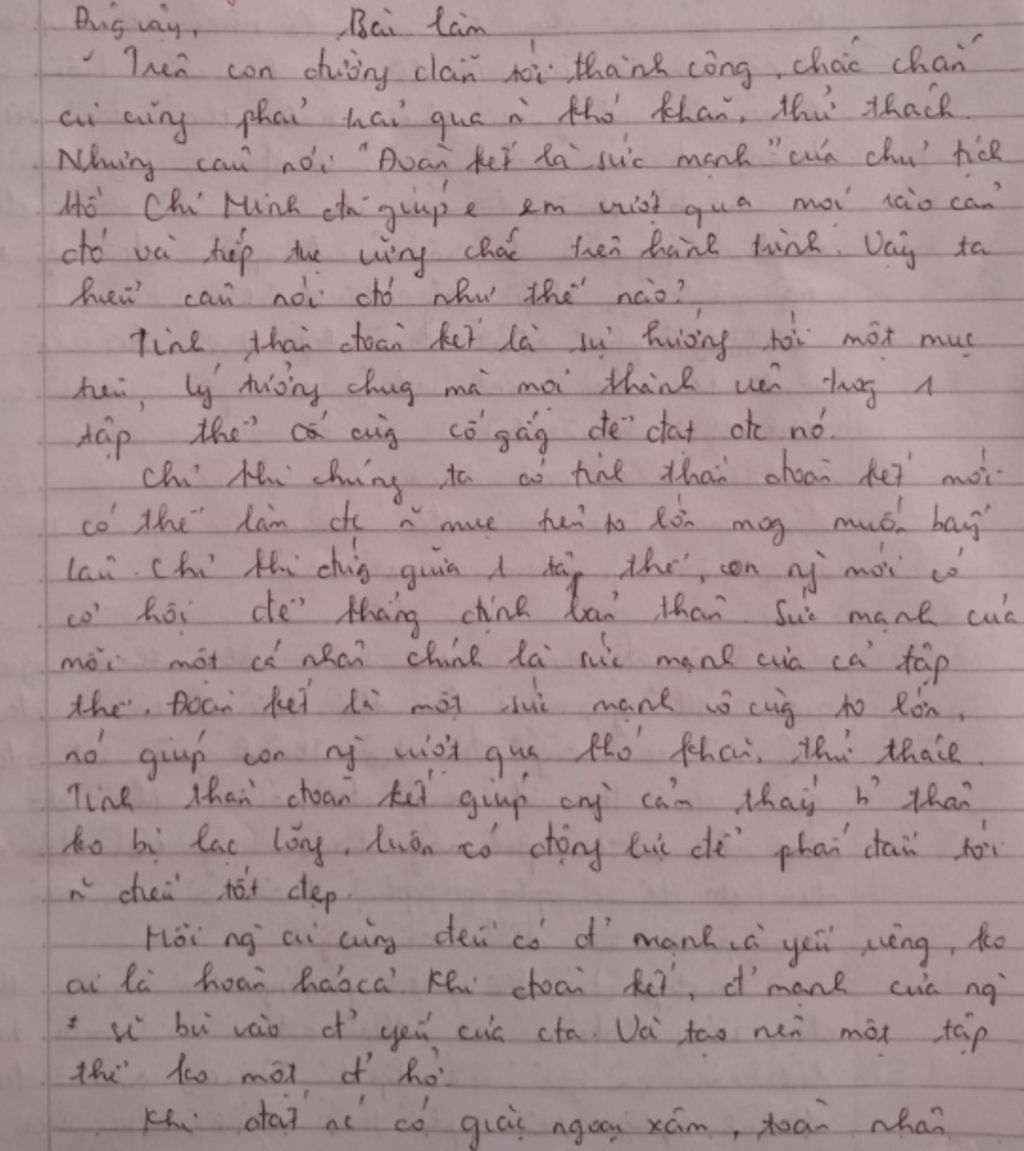 Đúng vậy, Bài làm
Trên con đường dẫn tới thành công, chắc chắn
ai cũng phải trải qua n~ khó khăn, thử thách.
Nhưng câu nói "Đoàn kết là sức mạnh" của chủ tịch
Hồ Chí Minh đã giúp e em vượt qua mọi rào cản
đó và tiếp tục vững chắc trên hành trình. Vậy ta
hiểu câu nói đó như thế nào?
Tinh thần đoàn kết là sự hướng tới một mục
tiêu, lý tưởng chug mà mọi thành viên trog 1
tập thể cố cùg cố gắg để đạt đc nó.
Chỉ khi chúng ta có tinh thần đoàn kết mới
có thể làm đc n~ mục tiêu to lớn mog muốn bấy
lâu. Chỉ khi đứg giữa 1 tập thể, con ng` mới có
cơ hội để khẳng định bản thân. Sức mạnh của
mỗi một cá nhân chính là sức mạnh của cả tập
thể. Đoàn kết là một sức mạnh vô cùg to lớn,
nó giúp con ng` vượt qua khó khăn, thử thách.
Tinh thần đoàn kết giúp cng` cảm thấy b' thân
ko bị lạc lõng, luôn có động lực để phấn đấu tới
n~ điều tốt đẹp.
Mỗi ng` ai cũng đều có đ' mạnh và yếu riêng, ko
ai là hoàn hảo cả. Khi đoàn kết, đ' mạnh của ng`
# sẽ bù vào đ' yếu của cta. Và tạo nên một tập
thể ko một đ' hở.
Khi đất nc có giặc ngoại xâm, toàn nhân